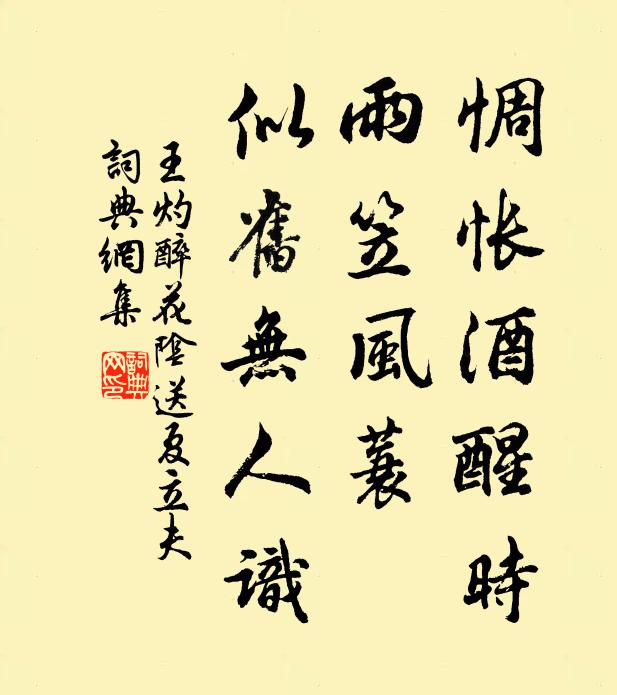 惆悵酒醒時
雨笠風蓑
似舊無人識
王灼醉花陰送夏立夫
詞典網集
詞典網印